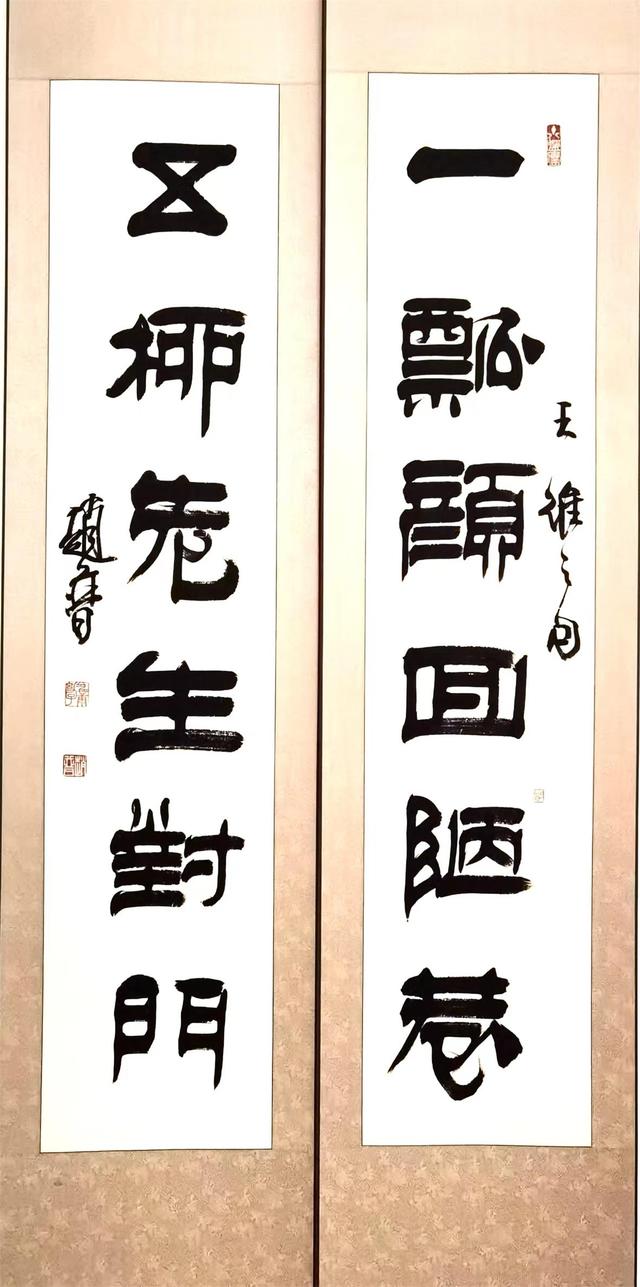 一瓢顏回陋巷
王維之句
五柳先生對門
趙